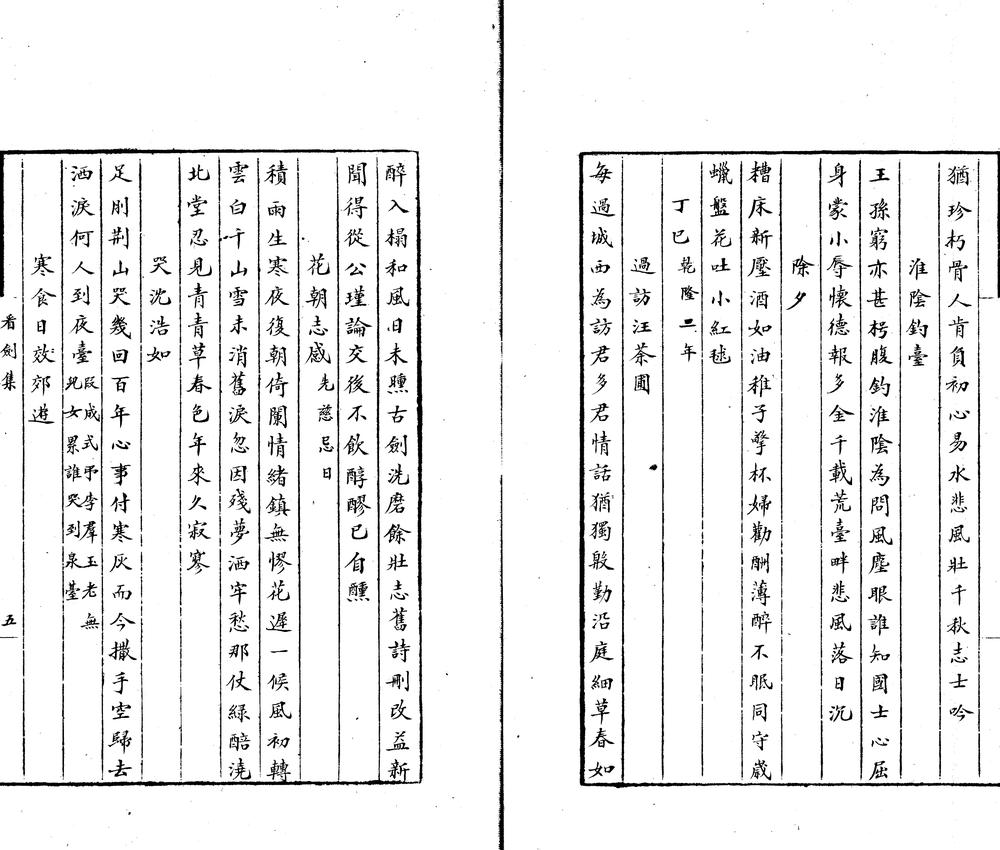 猶珍朽骨人肯負初心易水悲風壯千秋志士吟
淮陰釣臺
王孫窮亦甚枵腹釣淮陰為問風塵眼誰知國士心屈
身蒙小辱懷德報多金千載荒臺畔悲風落日沉
除夕
糟床新壓酒如油稚子擎杯婦勸酬薄醉不眠同守歲
蠟盤花吐小紅毬
丁巳乾隆二年
過訪汪茶圃
每過城西為訪君多君情話猶獨殷勤沿庭細草春如
醉入榻和風日未曛古劍洗磨餘壯志舊詩刪改益新
聞得從公瑾論交後不飲醇醪已自醺
花朝志感先慈忌日
積雨生寒夜復朝倚闌情緒鎮無憀花遲一候風初轉
雲白千山雪未消舊淚忽因殘夢洒牢愁那仗綠醅澆
北堂忍見青青草春色年來久寂寥
哭沈浩如
足刖荆山哭幾回百年心事付寒灰而今撒手空歸去
洒淚何人到夜臺段成式弔李羣玉老無
兒女累誰哭到泉臺
寒食日效郊遊
看劍集
五